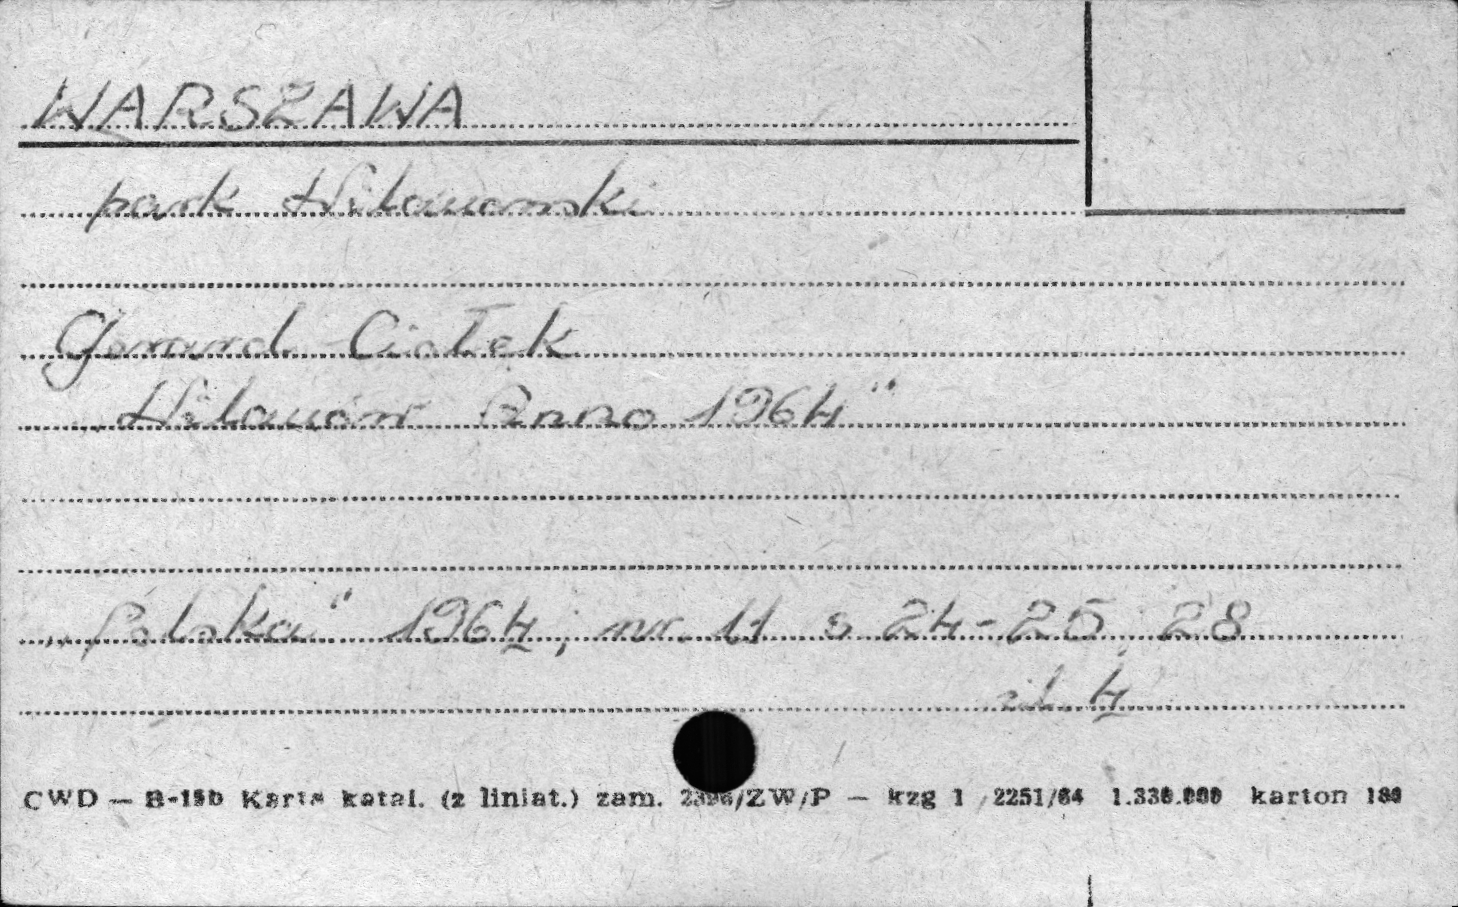 WARSZAWA
park Wilanowski
Gerard Ciołek
„Wilanów Anno 1964"
„Polska" 1964, nr. 11 s 24-25, 28
il. 4
CWD — B-15b Karta katal. (z liniat.) zam. /ZW/P — kzg 1 2251/64 1.330.000 karton 180